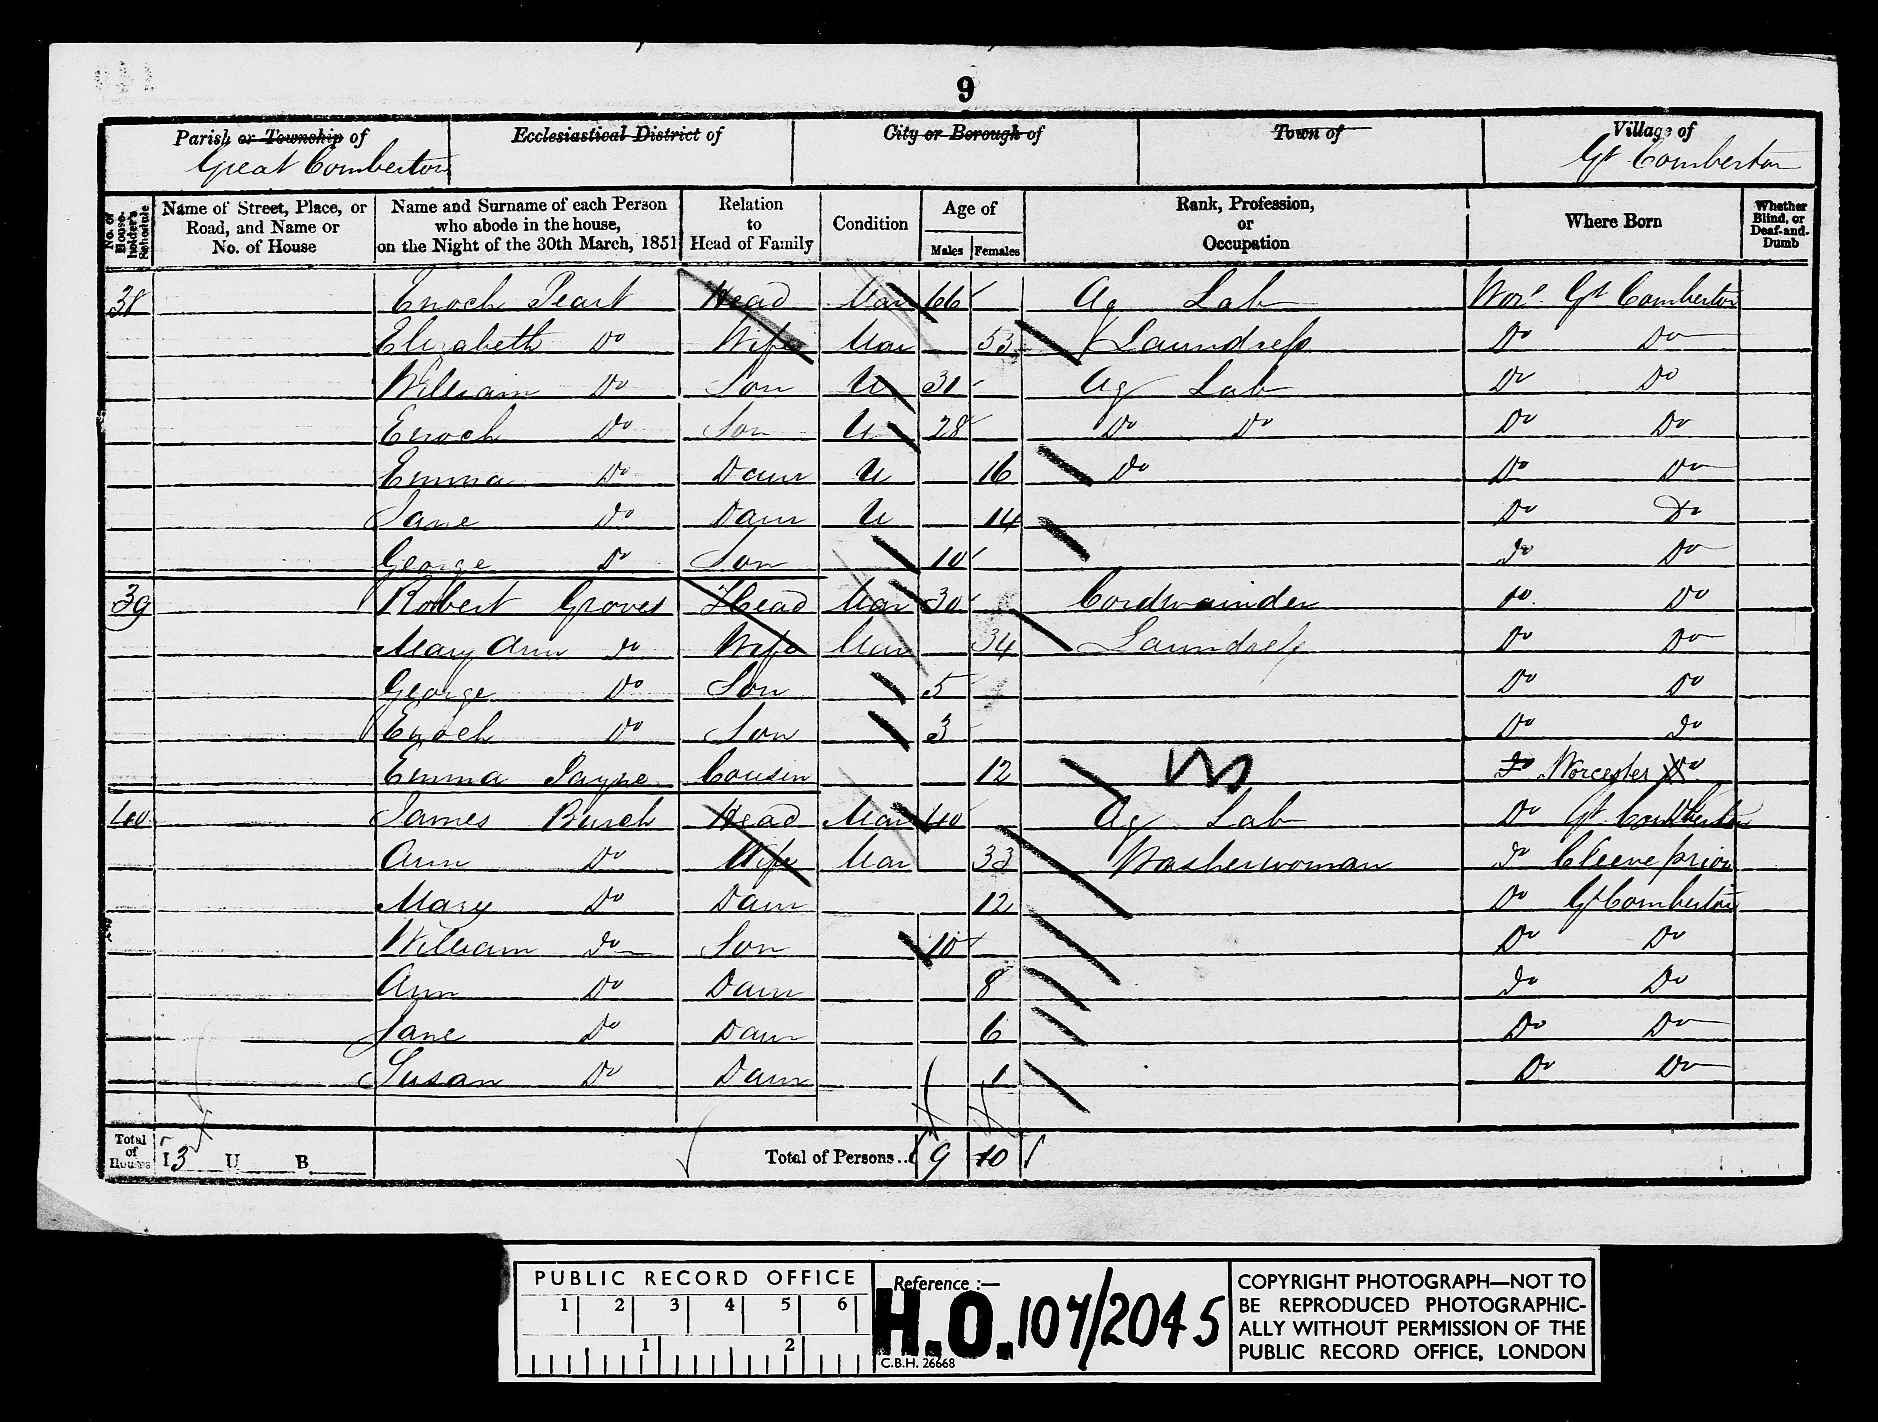 9
Parish or Township of Ecclesiastical District of City or Borough of Town of Village of
Great Comberton Gt Comberton
No. of Householder's Schedule Name of Street, Place, or Road, and Name or No. of House Name and Surname of each Person who abode in the house, on the Night of the 30th March, 1851 Relation to Head of Family Condition Age of Males Females Rank, Profession, or Occupation Where Born Whether Blind, or Deaf-and-Dumb
38 Enoch Peart Head Mar 66 Ag Lab Wors. Gt Comberton
Elizabeth Do Wife Mar 53 Laundress Do Do
William Do Son U 31 Ag Lab Do Do
Enoch Do Son U 28 Do Do Do Do
Emma Do Daur U 16 Do Do Do
Jane Do Daur U 14 Do Do
George Do Son 10 Do Do
39 Robert Groves Head Mar 30 Cordwainder Do Do
Mary Ann Do Wife Mar 34 Laundress Do Do
George Do Son 5 Do Do
Enoch Do Son 3 Do Do
Emma Payne Cousin 12 Do Worcester Do
40 James Burch Head Mar 40 Ag Lab Do Gt Comberton
Ann Do Wife Mar 33 Washerwoman Do Cleeve prior
Mary Do Daur 12 Do Gt Comberton
William Do Son 10 Do Do
Ann Do Daur 8 Do Do
Jane Do Daur 6 Do Do
Susan Do Daur 1 Do Do
Total of Houses I 3 U B Total of Persons.. 9 10
PUBLIC RECORD OFFICE
1 2 3 4 5 6
1 2
Reference :—
H.O. 107/2045
C.B.H. 26668
COPYRIGHT PHOTOGRAPH—NOT TO
BE REPRODUCED PHOTOGRAPHIC-
ALLY WITHOUT PERMISSION OF THE
PUBLIC RECORD OFFICE, LONDON